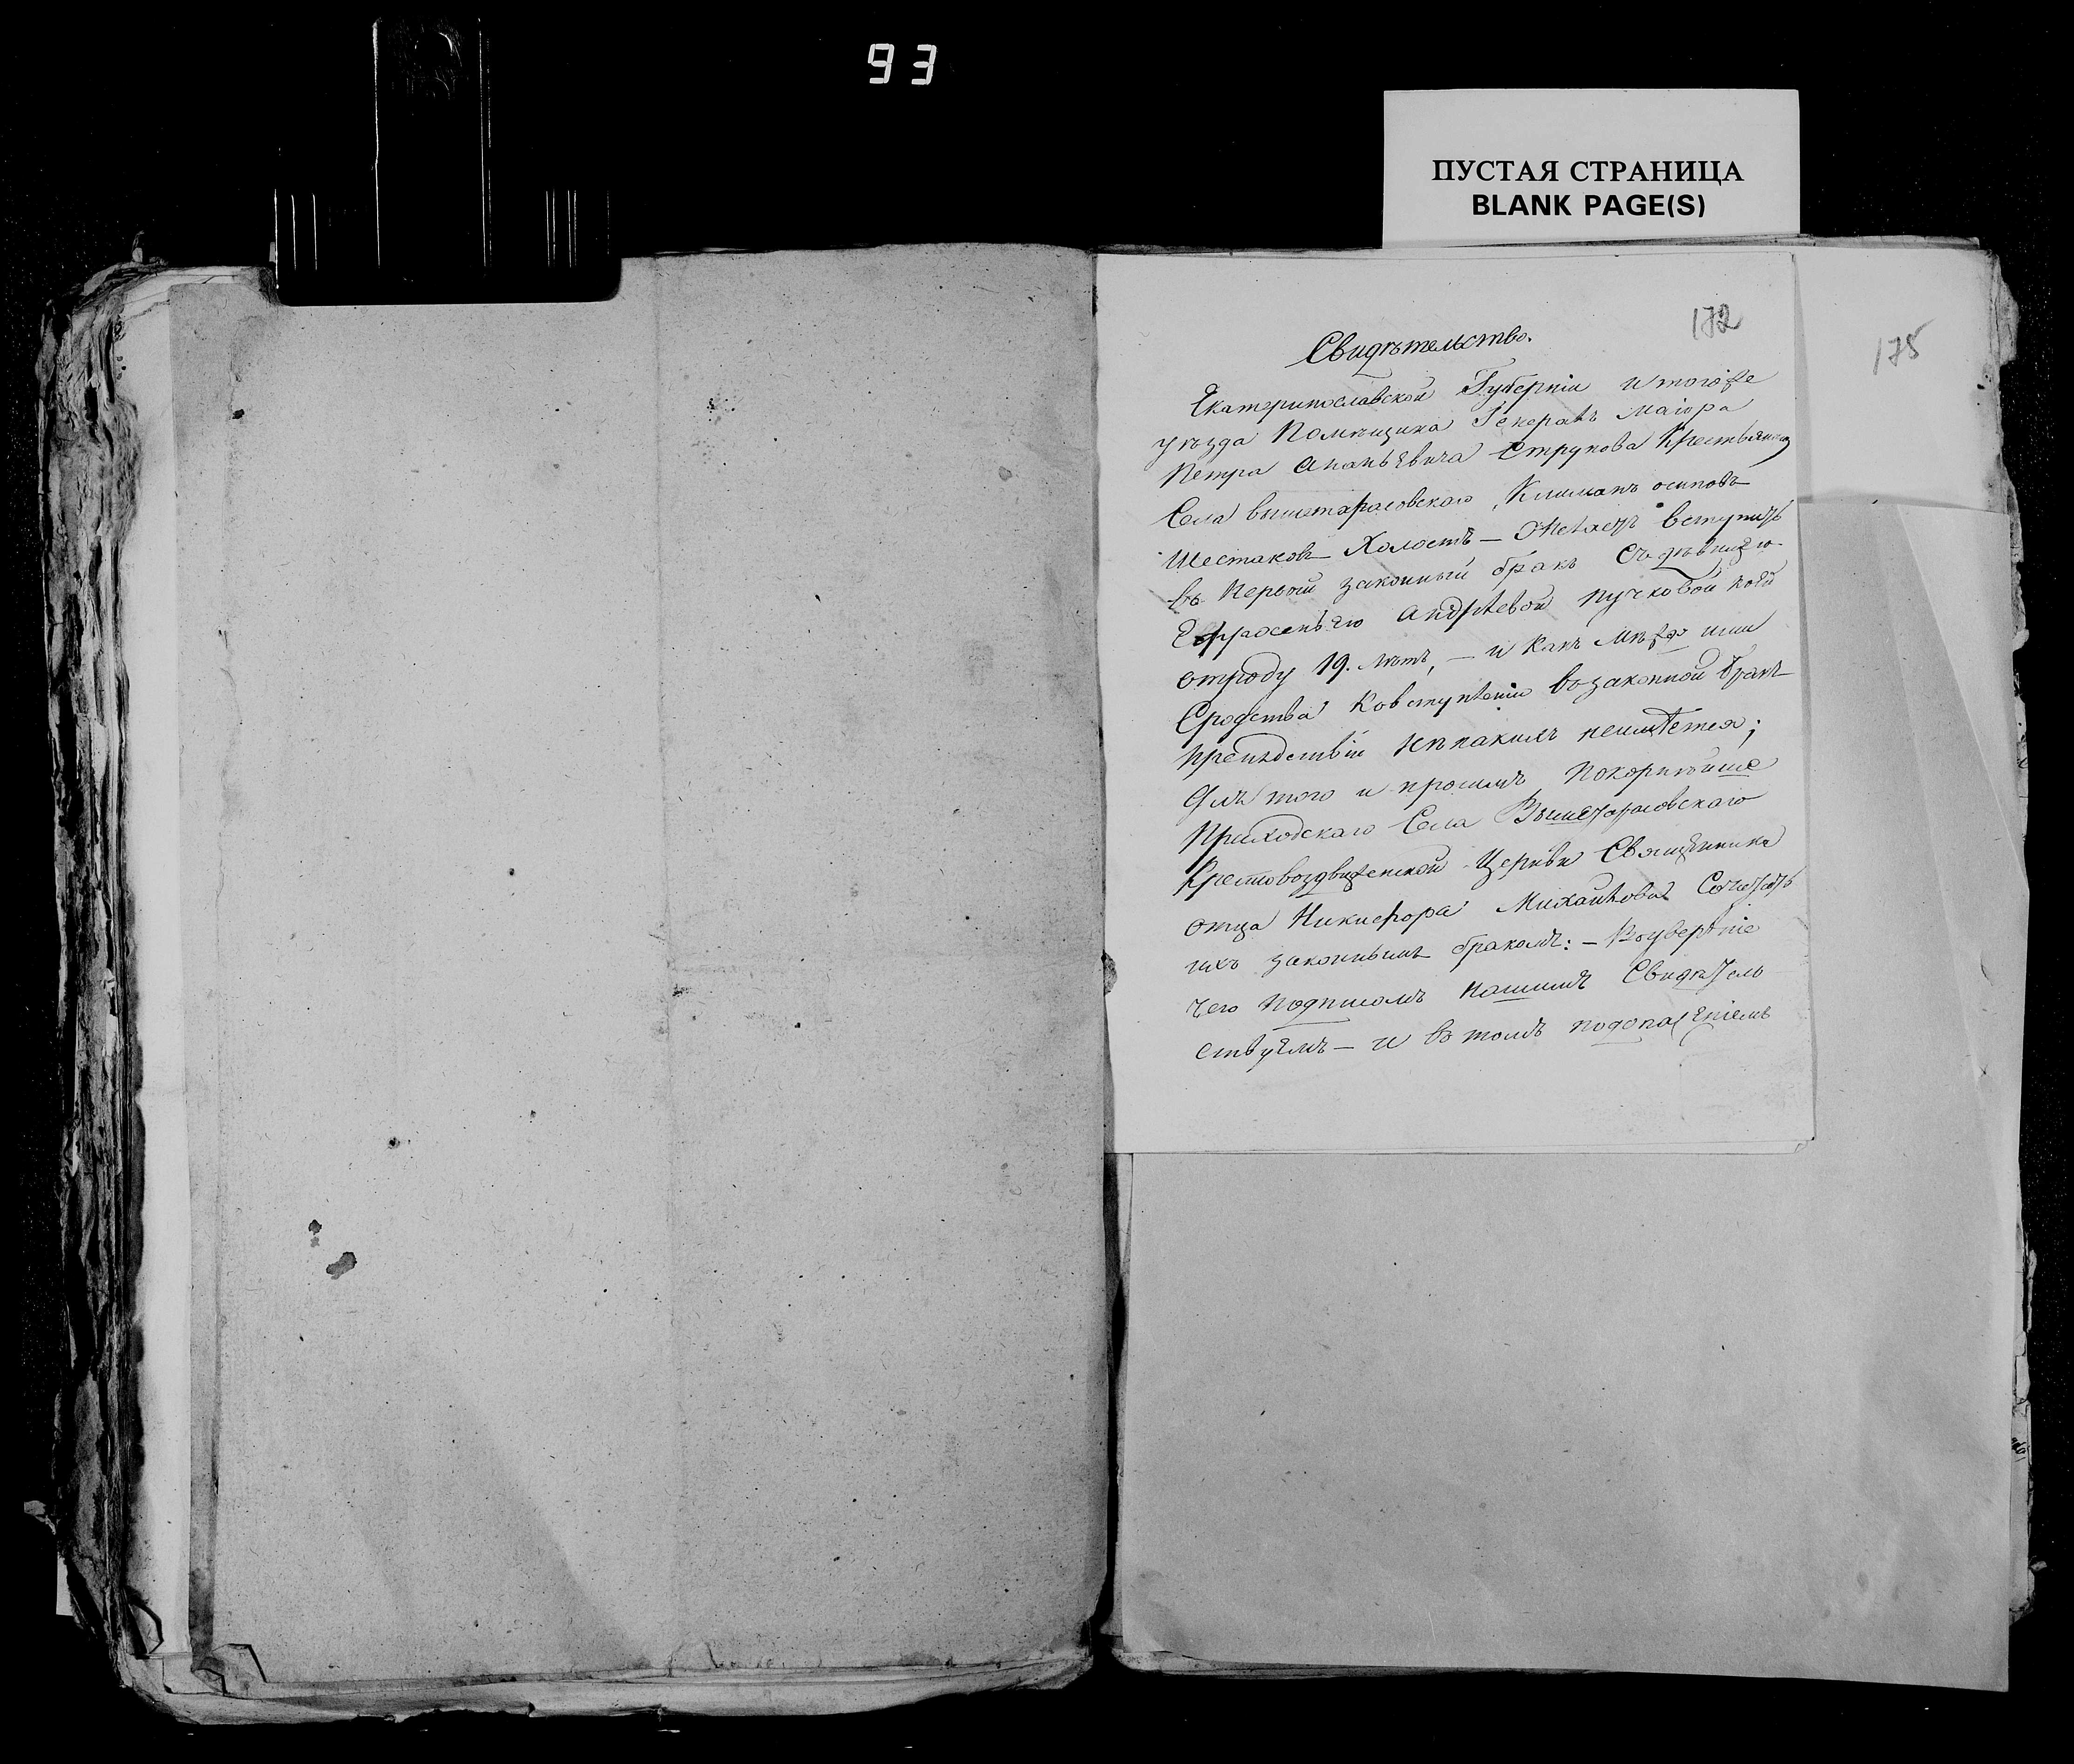 93
ПУСТАЯ СТРАНИЦА
BLANK PAGE(S)
172
175
Свидѣтельство.
Екатеринославской Губерніи итогоже
уѣзда Помѣщика Генералъ Маіора
Петра Ананьевича Струкова Крестьянинъ
Села вышетарасовскаго, Климанъ осиповъ
Шестаковъ Холостъ — Желаетъ вступить
въ Первый законный бракъ Съ дѣвицею
Ефросеньею Андрѣевой пучковой коей
отроду 19. лѣтъ, — и Какъ между ими
Сродства Ковступленію возаконной бракъ
препядствій неимѣется;
Для того и просимъ Покорнѣйше
Приходскаго Села Вышетарасовскаго
Крестовоздвиженской Церкви Священника
отца Никифора Михайлова Сочетать
ихъ законнымъ бракомъ: — Воувереніе
Чего Подписомъ нашимъ Свидѣтель
ствуемъ — и в томъ